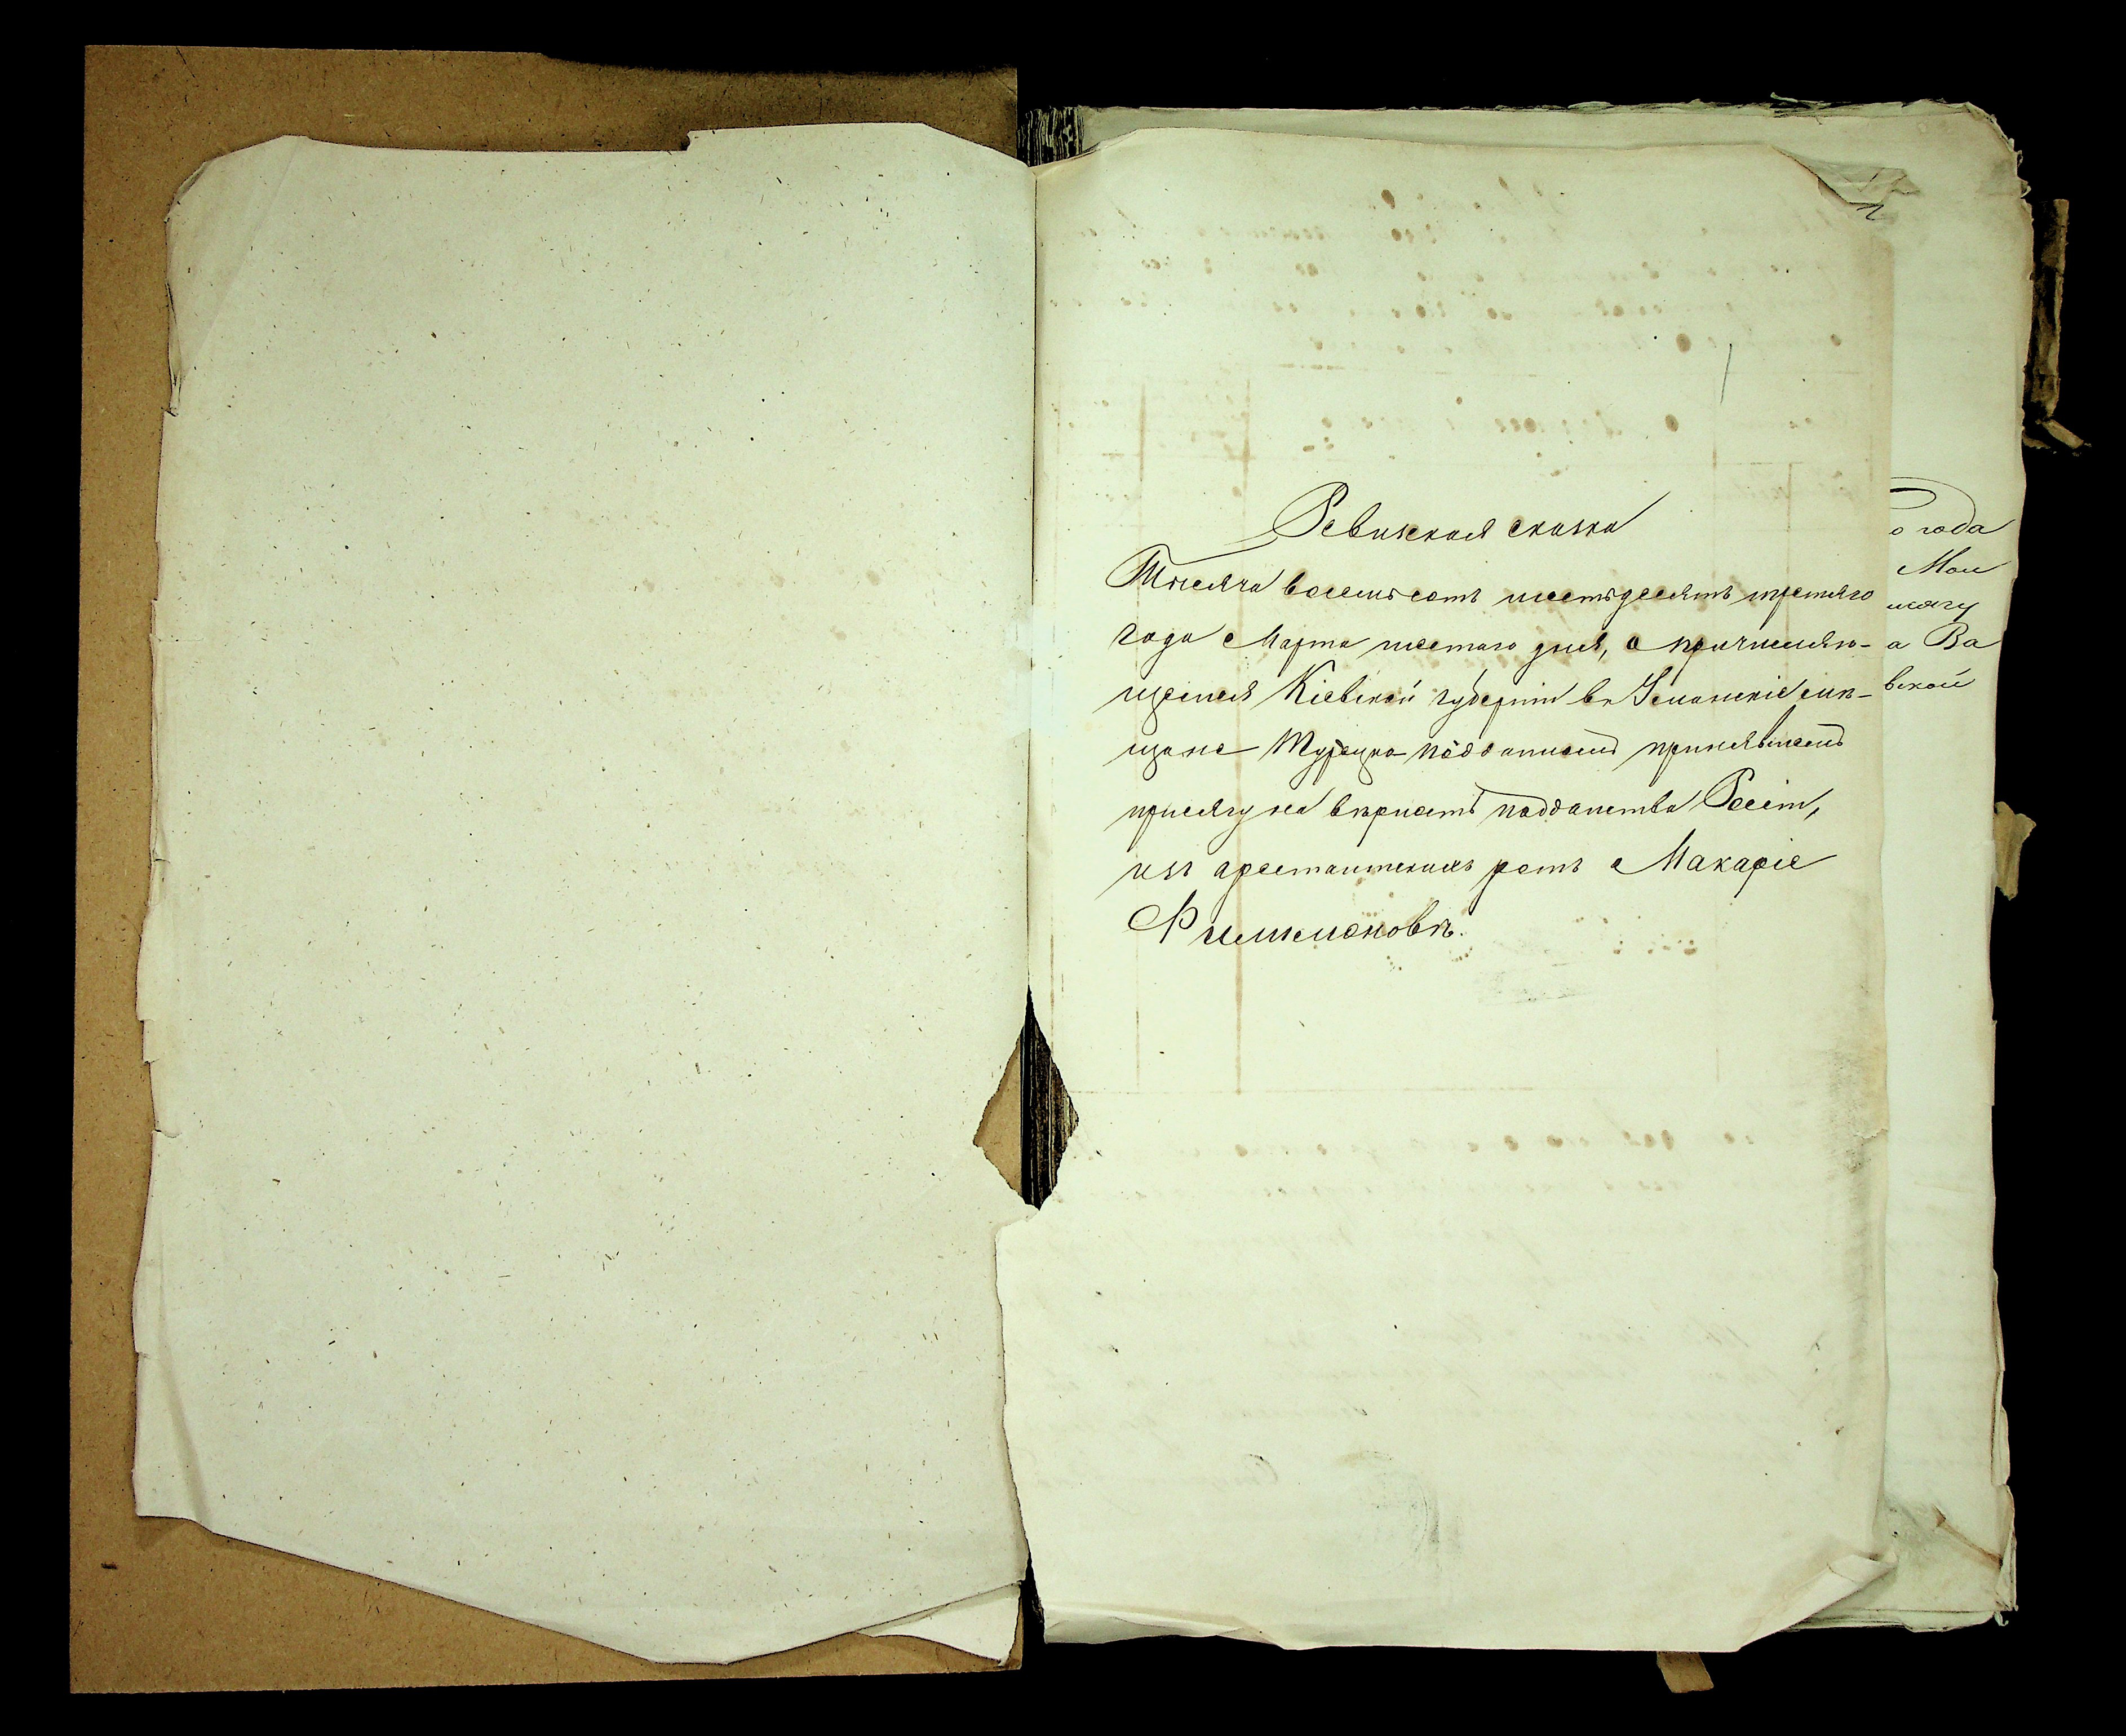 Ревизская сказка
Тысяча восемьсотъ шестьдесятъ третьяго
года Марта шестаго дня, о причисляю-
щемся Кіевской губерніи въ Уманскіе мѣ-
щане Турецко-подданномъ принявшемъ
присягу на вѣрность подданства Росіи,
изъ арестантскихъ ротъ Макаріе
Филимоновѣ.
о года
Мая
а Ва
вской